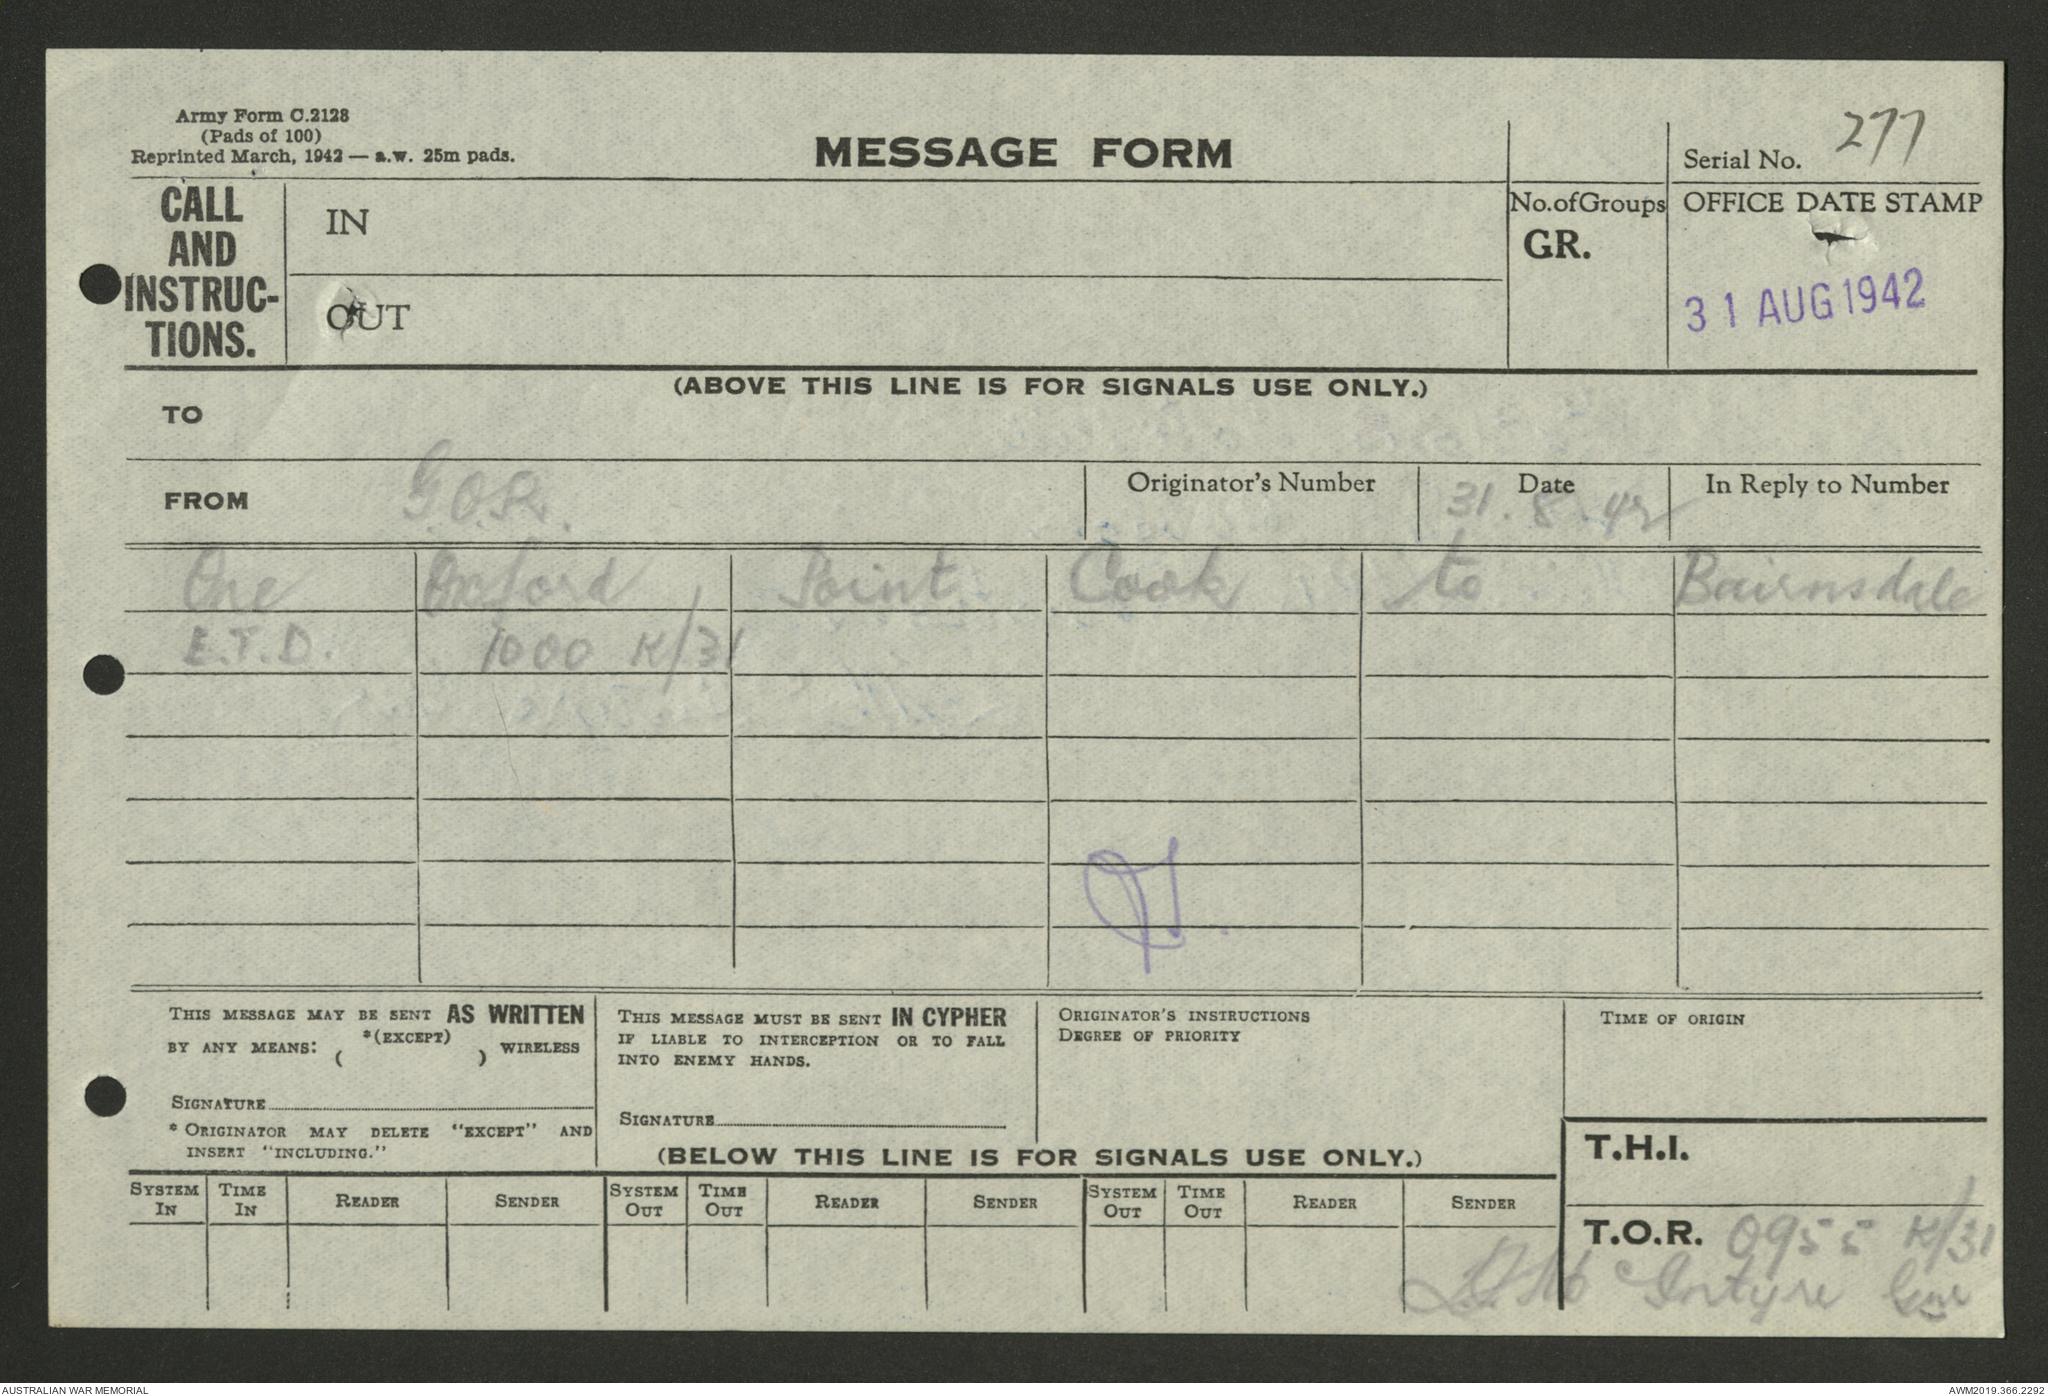 Army Form C.2128
(Pads of 100)
Reprinted March, 1942 — a.w. 25m pads.
MESSAGE FORM
Serial No. 277
CALL AND INSTRUC- TIONS.
IN
OUT
No.ofGroups
GR.
OFFICE DATE STAMP
31 AUG 1942
(ABOVE THIS LINE IS FOR SIGNALS USE ONLY.)
TO
FROM G.O.R.
Originator's Number
Date 31.8.42
In Reply to Number
One Oxford Point Cook to Bairnsdale
E.T.D. 1000 K/31
THIS MESSAGE MAY BE SENT AS WRITTEN
BY ANY MEANS: ( *(EXCEPT) ) WIRELESS
SIGNATURE
* ORIGINATOR MAY DELETE "EXCEPT" AND
INSERT "INCLUDING."
THIS MESSAGE MUST BE SENT IN CYPHER
IF LIABLE TO INTERCEPTION OR TO FALL
INTO ENEMY HANDS.
SIGNATURE
ORIGINATOR'S INSTRUCTIONS
DEGREE OF PRIORITY
TIME OF ORIGIN
(BELOW THIS LINE IS FOR SIGNALS USE ONLY.)
T.H.I.
SYSTEM IN TIME IN READER SENDER SYSTEM OUT TIME OUT READER SENDER SYSTEM OUT TIME OUT READER SENDER
T.O.R. 0955 K/31
McIntyre
AUSTRALIAN WAR MEMORIAL
AWM2019.366.2292